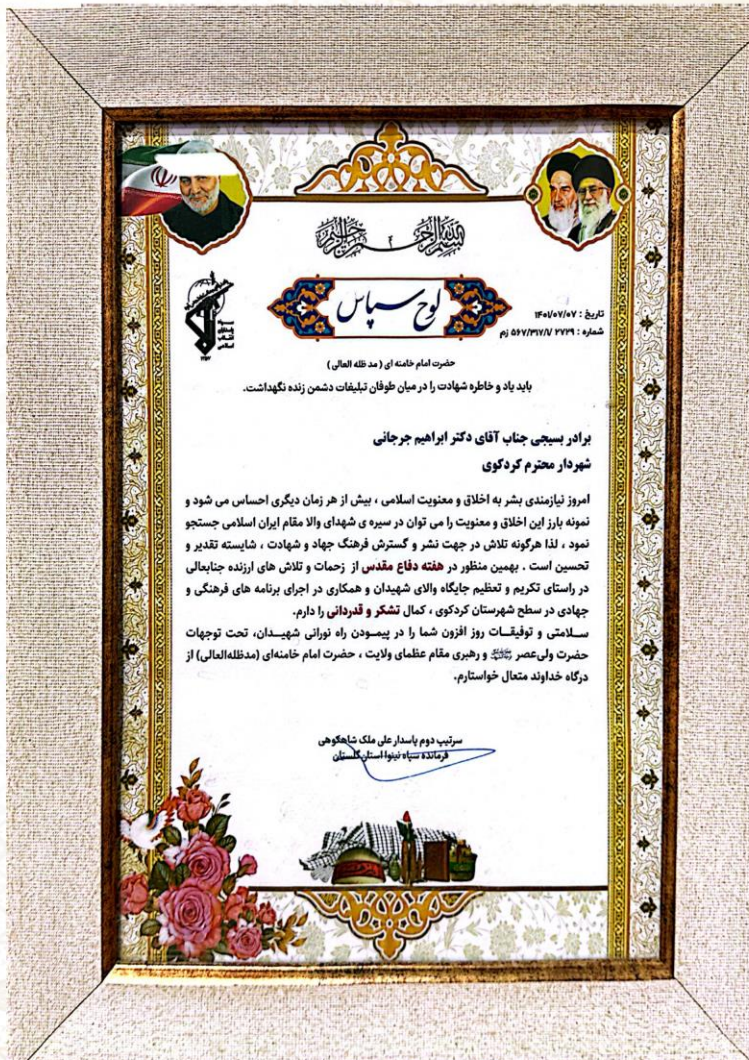 بسم الله الرحمن الرحیم
لوح سپاس
تاریخ : ۱۴۰۱/۰۷/۰۷
شماره : ۲۷۲۹ /۵۶۷/۳۱۷/۱ زم
حضرت امام خامنه ای ( مد ظله العالی )
باید یاد و خاطره شهادت را در میان طوفان تبلیغات دشمن زنده نگهداشت.
برادر بسیجی جناب آقای دکتر ابراهیم جرجانی
شهردار محترم کردکوی
امروز نیازمندی بشر به اخلاق و معنویت اسلامی ، بیش از هر زمان دیگری احساس می شود و
نمونه بارز این اخلاق و معنویت را می توان در سیره ی شهدای والا مقام ایران اسلامی جستجو
نمود ، لذا هرگونه تلاش در جهت نشر و گسترش فرهنگ جهاد و شهادت ، شایسته تقدیر و
تحسین است . بهمین منظور در هفته دفاع مقدس از زحمات و تلاش های ارزنده جنابعالی
در راستای تکریم و تعظیم جایگاه والای شهیدان و همکاری در اجرای برنامه های فرهنگی و
جهادی در سطح شهرستان کردکوی ، کمال تشکر و قدردانی را دارم.
سـلامتی و توفیقـات روز افزون شما را در پیمـودن راه نورانی شهیـدان، تحت توجهات
حضرت ولی‌عصر و رهبری مقام عظمای ولایت ، حضرت امام خامنه‌ای (مدظله‌العالی) از
درگاه خداوند متعال خواستارم.
سرتیپ دوم پاسدار علی ملک شاهکوهی
فرمانده سپاه نینوا استان گلستان